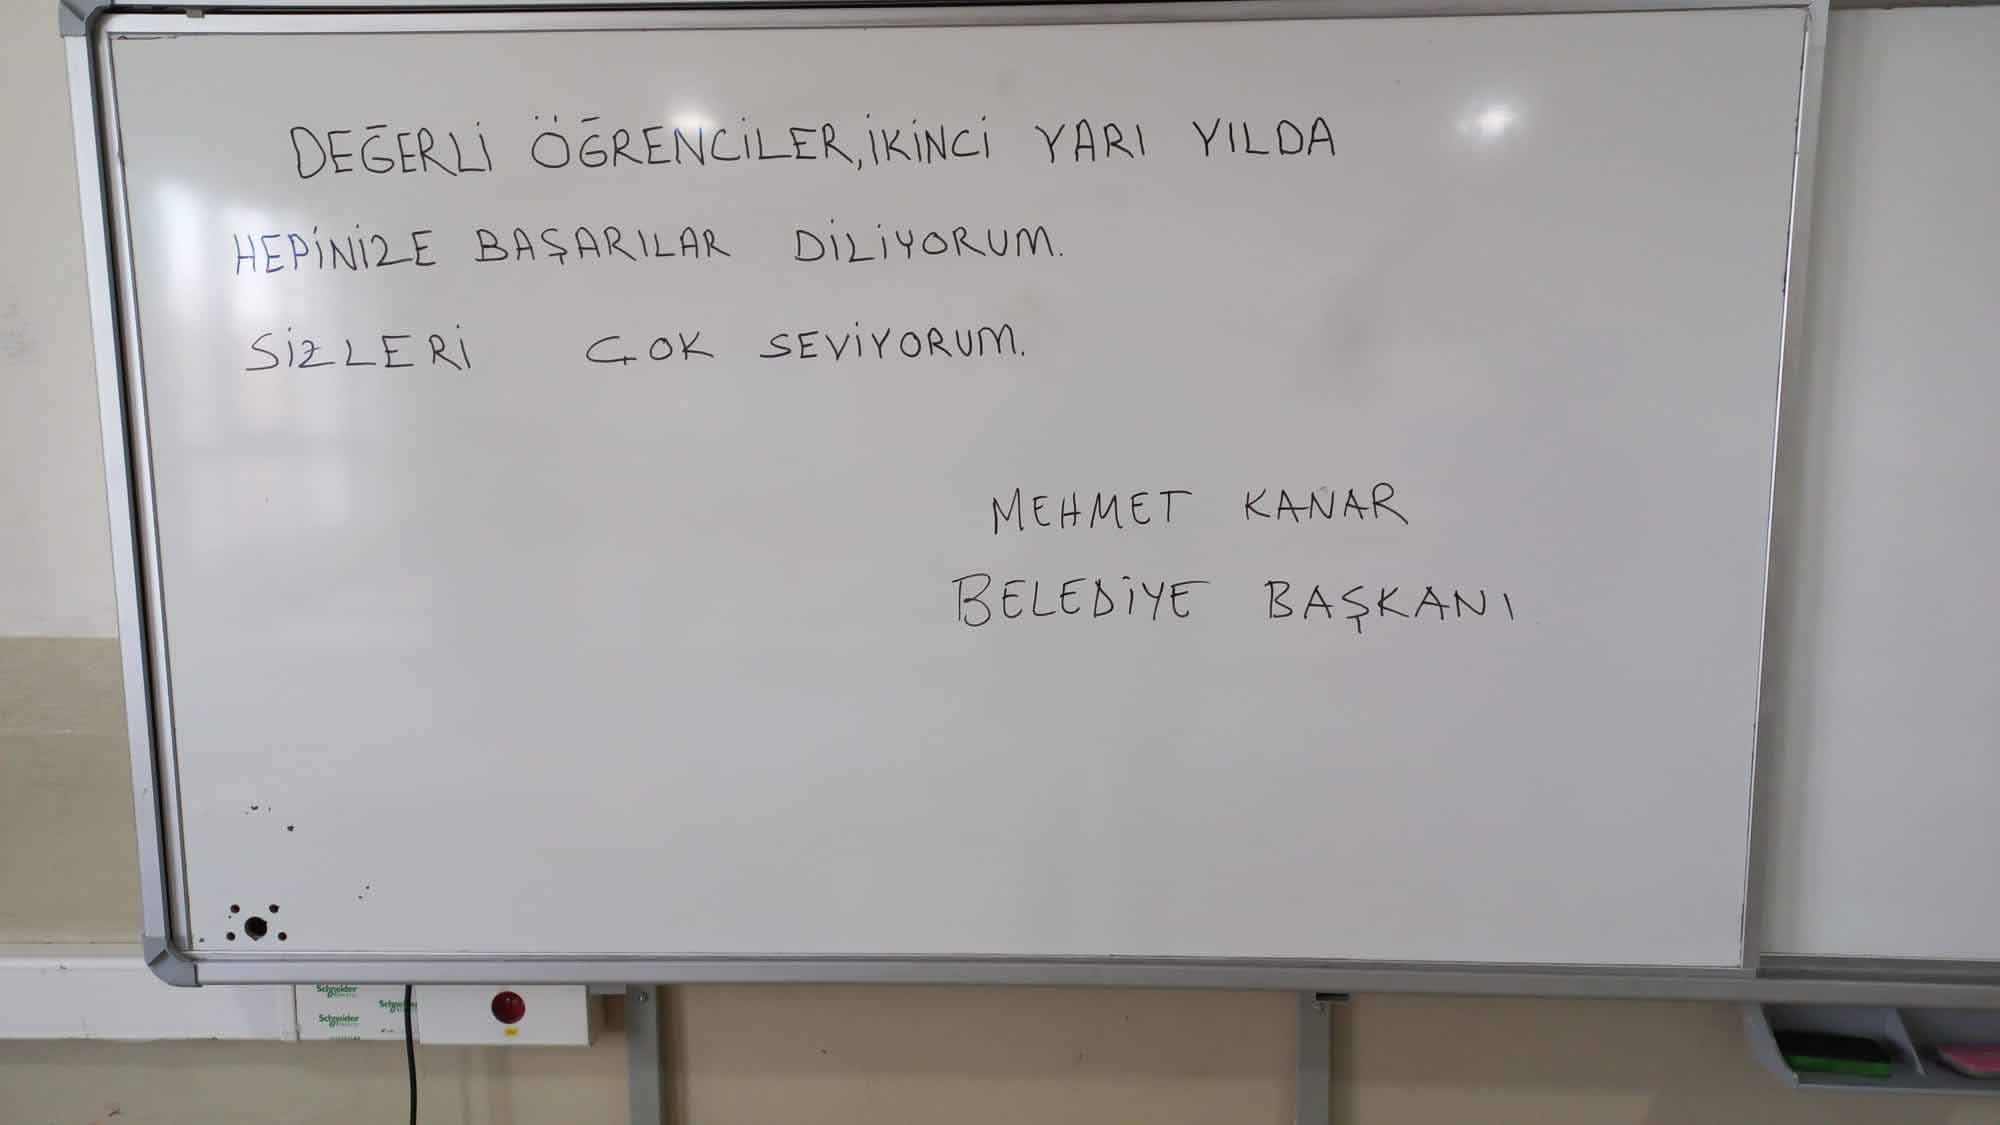 DEĞERLİ ÖĞRENCİLER, İKİNCİ YARI YILDA
HEPİNİZE BAŞARILAR DİLİYORUM.
SİZLERİ ÇOK SEVİYORUM.
MEHMET KANAR
BELEDİYE BAŞKANI
Schneider
Schneider
Schneider